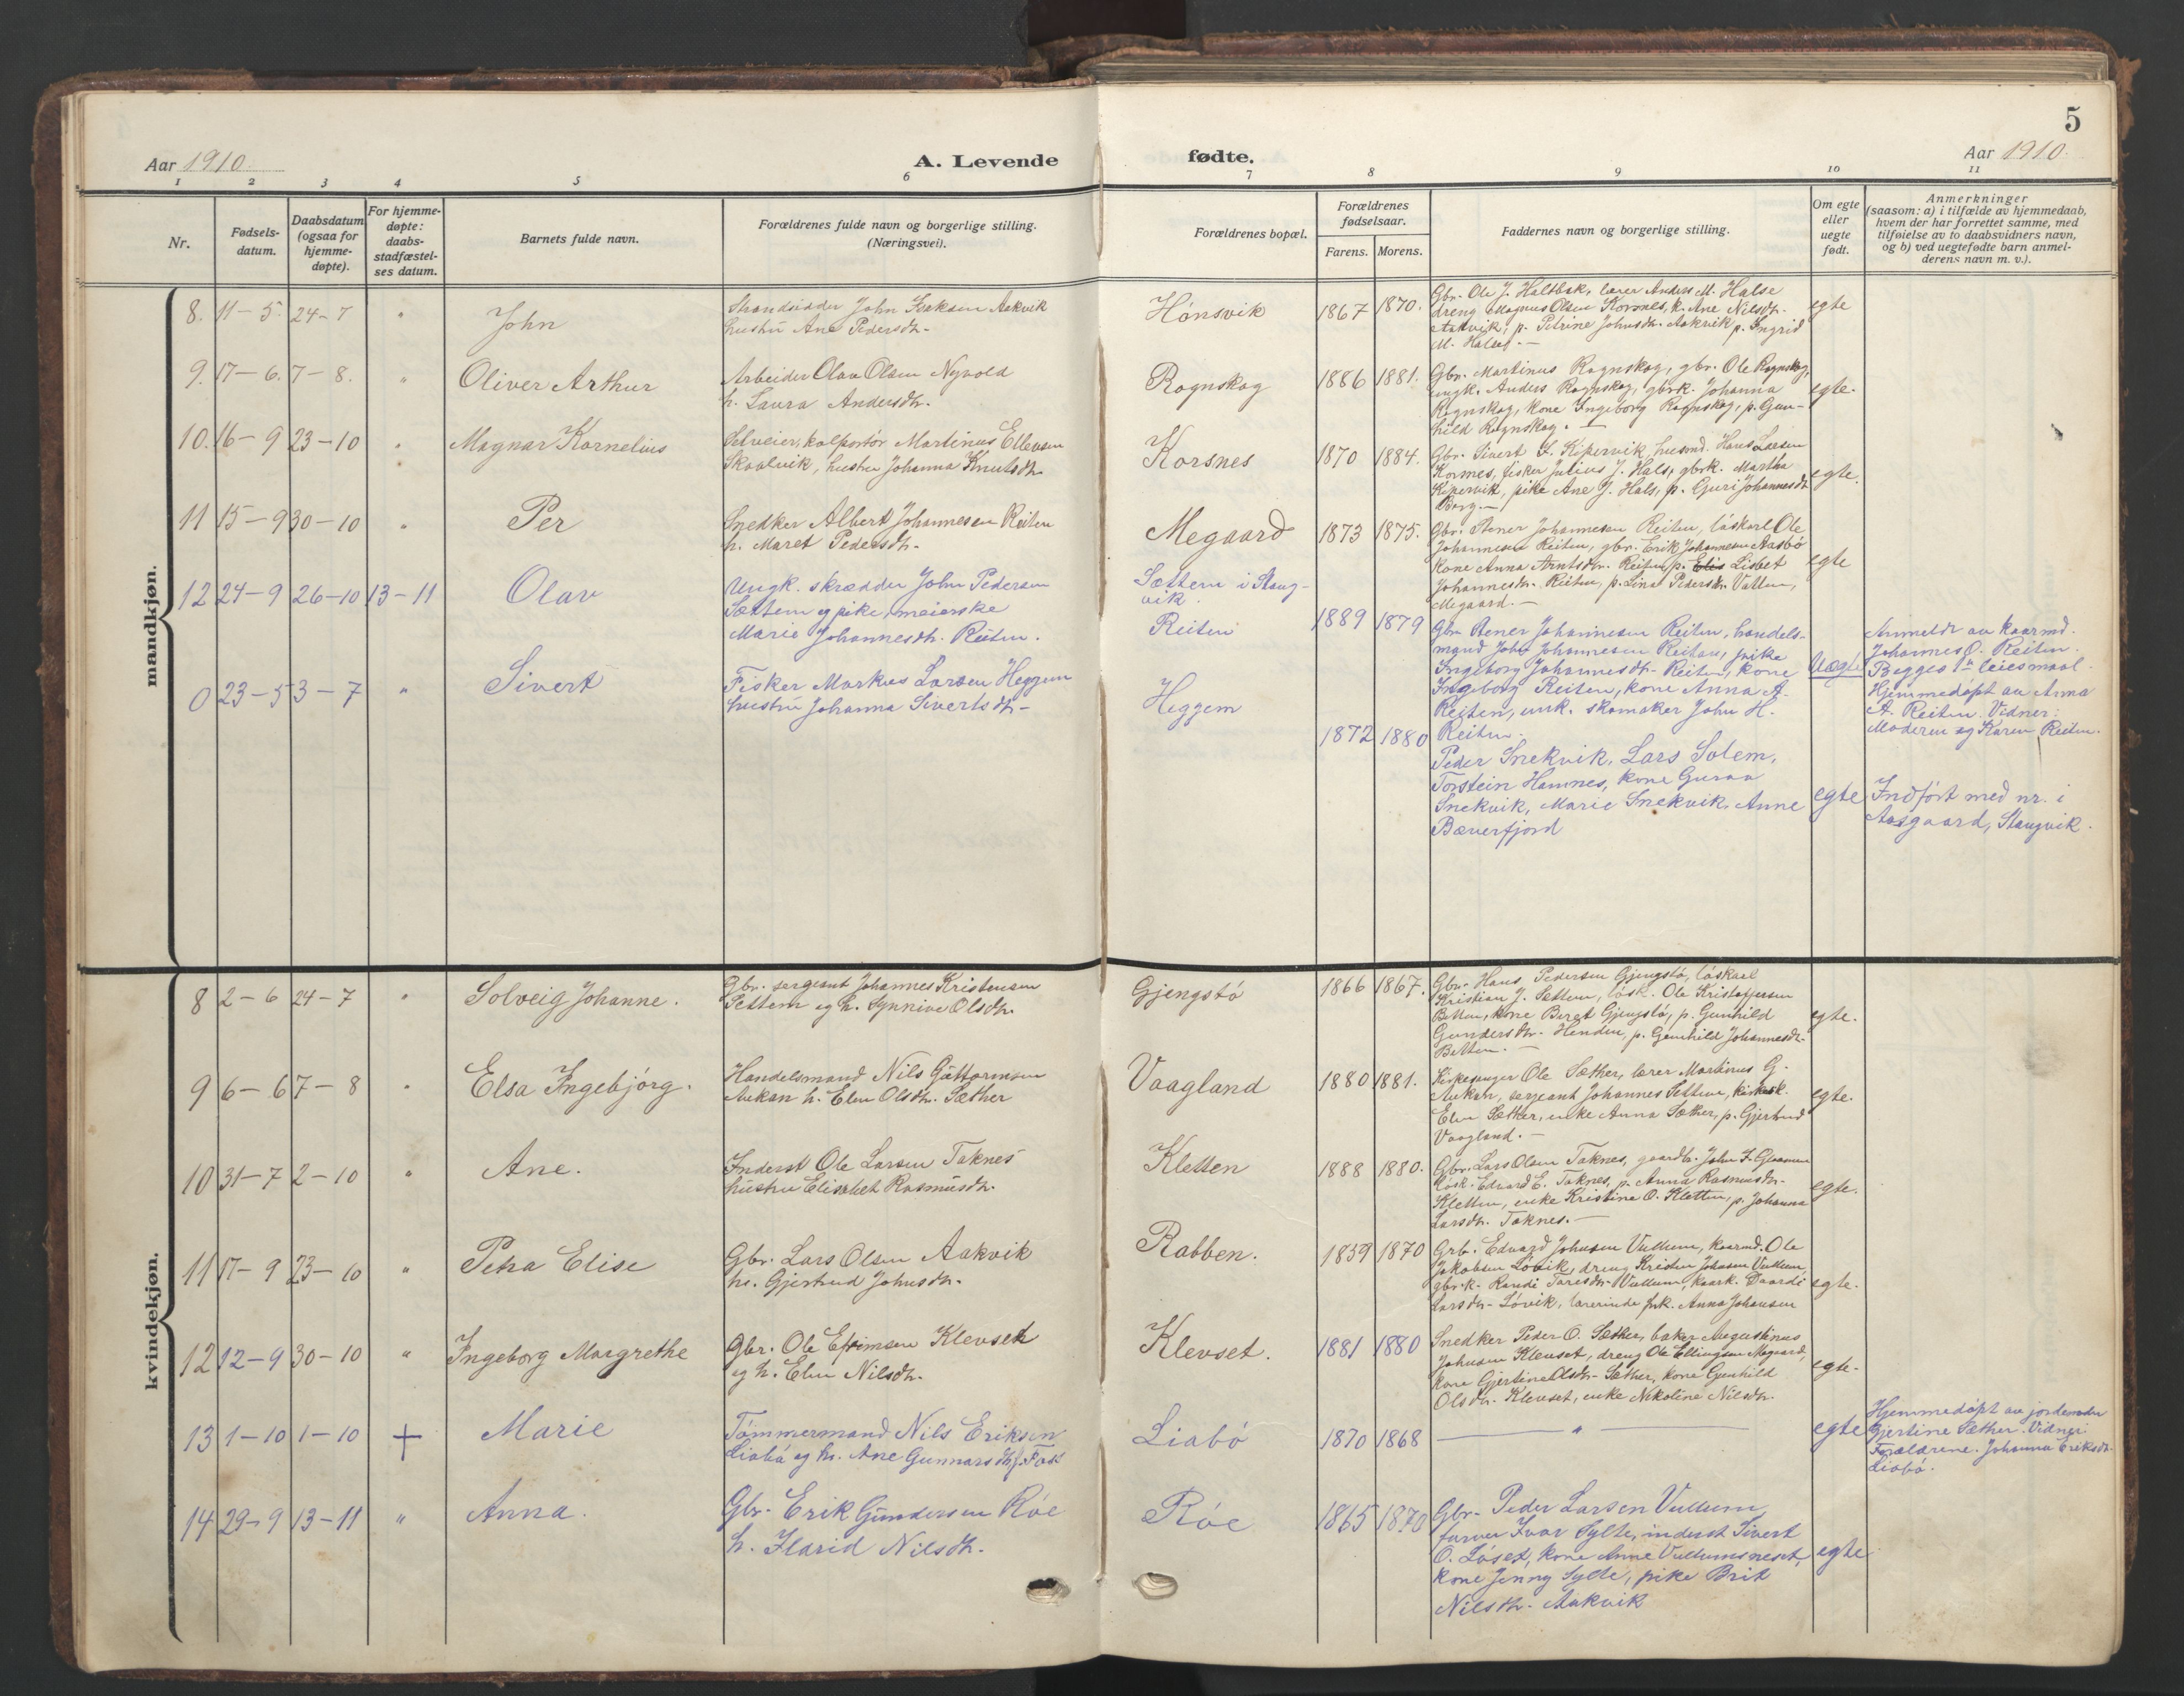 5
Aar 1910.
A. Levende
fødte.
Aar 1910.
1 2 3 4 5 6 7 8 9 10 11
Nr.
Fødsels-
datum.
Daabsdatum
(ogsaa for
hjemme-
døpte).
For hjemme-
døpte:
daabs-
stadfæstel-
ses datum.
Barnets fulde navn.
Forældrenes fulde navn og borgerlige stilling.
(Næringsvei).
Forældrenes bopæl.
Forældrenes
fødselsaar.
Farens. Morens.
Faddernes navn og borgerlige stilling.
Om egte
eller
uegte
født.
Anmerkninger
(saasom: a) i tilfælde av hjemmedaab,
hvem der har forrettet samme, med
tilføielse av to daabsvidners navn,
og b) ved uegtefødte barn anmel-
derens navn m. v.).
mandkjøn.
8. 11-5. 24-7 " John
Strandsidder John Aakvik
hustru Ane Pedersdtr.
Hønsvik 1867 1870.
Gbr. Ole J. Haltbak, lærer Anders M. Halse
dreng Magnus Olsen Korsnes, k. Ane Nilsdtr.
Aakvik, p. Petrine Johnsdtr. Aakvik p. Ingrid
M. Halse. -
egte
9. 17-6. 7-8. " Oliver Arthur
Arbeider Olav Olsen Nyvold
h. Laura Andersdtr.
Rognskog 1886 1881.
Gbr. Martinus Rognskog, gbr. Ole Rognskog,
ungk. Anders Rognskog, gbrk. Johanna
Rognskog, kone Ingeborg Rognskog, p. Gun-
hild Rognskog. -
egte.
10. 16-9 23-10 " Magnar Kornelius
Selveier, kolportør Martinus Ellevsen
Skaalvik, hustru Johanna Knutsdtr.
Korsnes 1870 1884.
Gbr. Sivert L. Kipervik, husmd. Hans Larsen
Korsnes, fisker Julius J. Hals, gbrk. Martha
Kipervik, pike Ane J. Hals, p. Guri Johannesdtr.
Berg. -
egte.
11 15-9 30-10 " Per
Snedker Albert Johannesen Reiten
h. Maret Pedersdtr.
Megaard 1873 1875.
Gbr. Stener Johannesen Reiten, løskarl Ole
Johannesen Reiten, gbr. Erik Johannesen Aasbø
kone Anna Arntsdtr. Reiten, p. Elis Lisbet
Johannesdtr. Reiten, p. Lina Pedersdtr. Vatten,
Megaard. -
egte
12 24-9 26-10 13-11 Olav
Ungk. skrædder John Pedersen
Sættem og pike, meierske
Marie Johannesdtr. Reiten.
Sættem i Stang-
vik.
Reiten
1889 1879
Gbr. Stener Johannesen Reiten, handels-
mand John Johannesen Reiten, pike
Ingeborg Johannesdtr. Reiten, kone
Ingeborg Reiten, kone Anna A.
Reiten, unk. skomaker John H.
Reiten.
Uegte
Anmeldt av kaarmd.
Johannes O. Reiten.
Begges 1ste leiesmaal.
Hjemmedøpt av Anna
A. Reiten. Vidner:
Moderen og Karen Reiten.
0 23-5 3-7 " Sivert
Fisker Markus Larsen Heggem
hustru Johanna Sivertsdtr.
Heggem 1872 1880
Peder Snekvik, Lars Solem,
Torstein Hamnes, kone Guraa
Snekvik, Marie Snekvik, Anne
Bæverfjord
egte
Indført med nr. i
Aasgaard, Stangvik.
kvindekjøn.
8 2-6 24-7 " Solveig Johanne.
Gbr. sergeant Johannes Kristensen
Settem og h. Synnive Olsdtr.
Gjengstø 1866 1867.
Gbr. Hans Pedersen Gjengstø, løskarl
Kristian J. Settem, løsk. Ole Kristoffersen
Betten, kone Beret Gjengstø, p. Gunhild
Gundersdtr. Henden, p. Gunhild Johannesdtr.
Betten. -
egte.
9 6-6 7-8 " Elsa Ingebjørg.
Handelsmand Nils Guttormsen
Aukan h. Elen Olsdtr. Sæther
Vaagland 1880 1881.
Kirkesanger Ole Sæther, lærer Martinus G.
Aukan, sergeant Johannes Settem,
Elen Sæther, enke Anna Sæther, p. Gjertrud
Vaagland. -
egte.
10 31-7 2-10 " Ane.
Inderst Ole Larsen Taknes
hustru Elisabet Rasmusdtr.
Kletten 1888 1880.
Gbr. Lars Olsen Taknes, gaardbr. John
løsk. Edvard E. Taknes, p. Anna Rasmusdtr.
Kletten, enke Kristine O. Kletten, p. Johanna
Larsdtr. Taknes. -
egte.
11 17-9 23-10 " Petra Elise
Gbr. Lars Olsen Aakvik
h. Gjertrud Johnsdtr.
Rabben. 1859 1870
Grb. Edvard Johnsen Vullum, kaarmd. Ole
Jakobsen Løvik, dreng Kristen Johnsen Vullum,
gbr.k. Randi Vullum, kaark.
Larsdtr. Løvik, lærerinde frk. Anna Johansen
egte.
12 12-9 30-10 " Ingeborg Margrethe
Gbr. Ole Efrimsen Klevset
og h. Elen Nilsdtr.
Klevset. 1881 1880
Snedker Peder O. Sæther, baker Augustinus
Johnsen Klevset, dreng Ole Ellingsen Megaard,
kone Gjertine Olsdtr. Sæther, kone Gunhild
Olsdtr. Klevset, enke Nikoline Nilsdtr.
egte.
13 1-10 1-10 + Marie
Tømmermand Nils Eriksen
Liabø og h. Ane Gunnarsdtr. f. Foss
Liabø 1870 1868
- " -
egte
Hjemmedøpt av jordemoder
Gjertine Sæther. Vidner:
Forældrene. Johanna Eriksdtr.
Liabø.
14 29-9 13-11 " Anna.
Gbr. Erik Gundersen Røe
h. Marid Nilsdtr.
Røe 1865 1870
Gbr. Peder Larsen Vullum,
farver Ivar Sylte, inderst Sivert
O. Løset, kone Anne Vullumsneset,
kone Jenny Sylte, pike Brit
Nilsdtr. Aakvik
egte